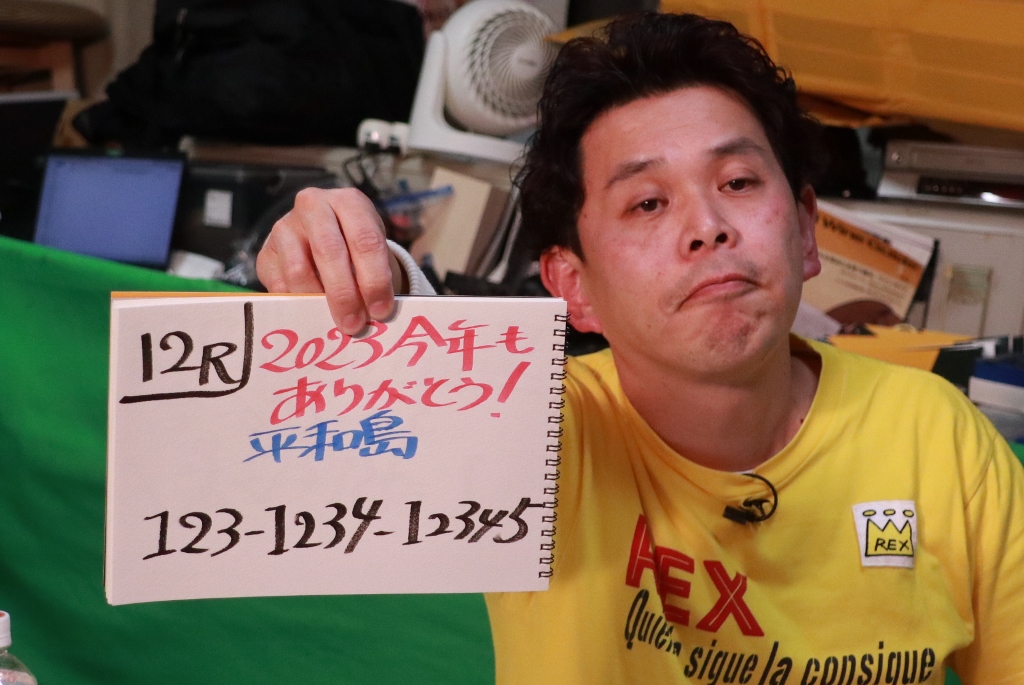 12R
2023今年も
ありがとう!
平和島
123-1234-12345
REX
REX
Quien la sigue la consigue